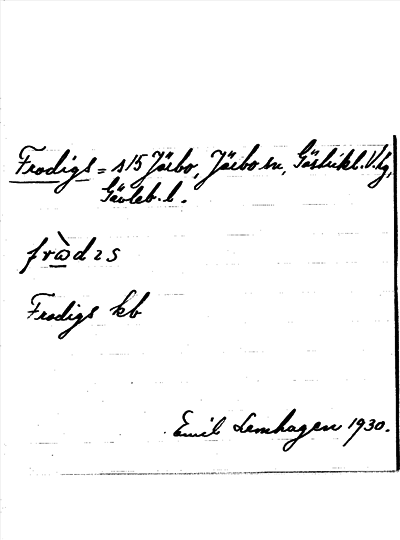 Frodigs = s15 Järbo, Järbo sn, Gästrikl. V. tg,
Gävleb. l.
frɷ̀dɪs
Frodigs kb
Emil Lemhagen 1930.